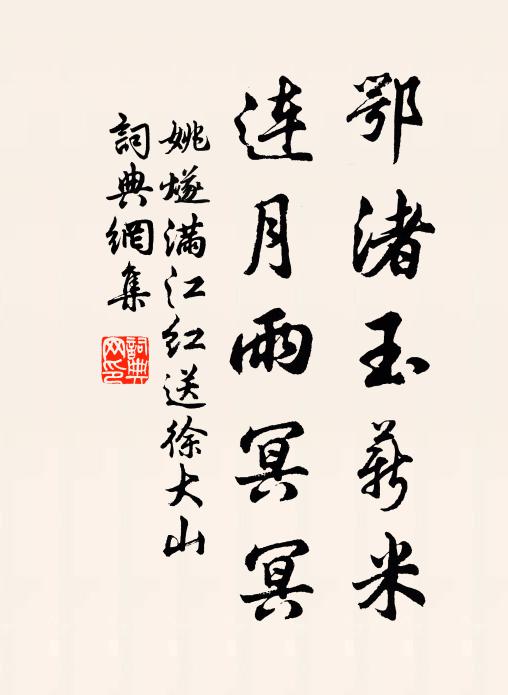 鄂渚玉薪米
连月雨冥冥
姚燧满江红送徐大山
詞典網集
詞典網印